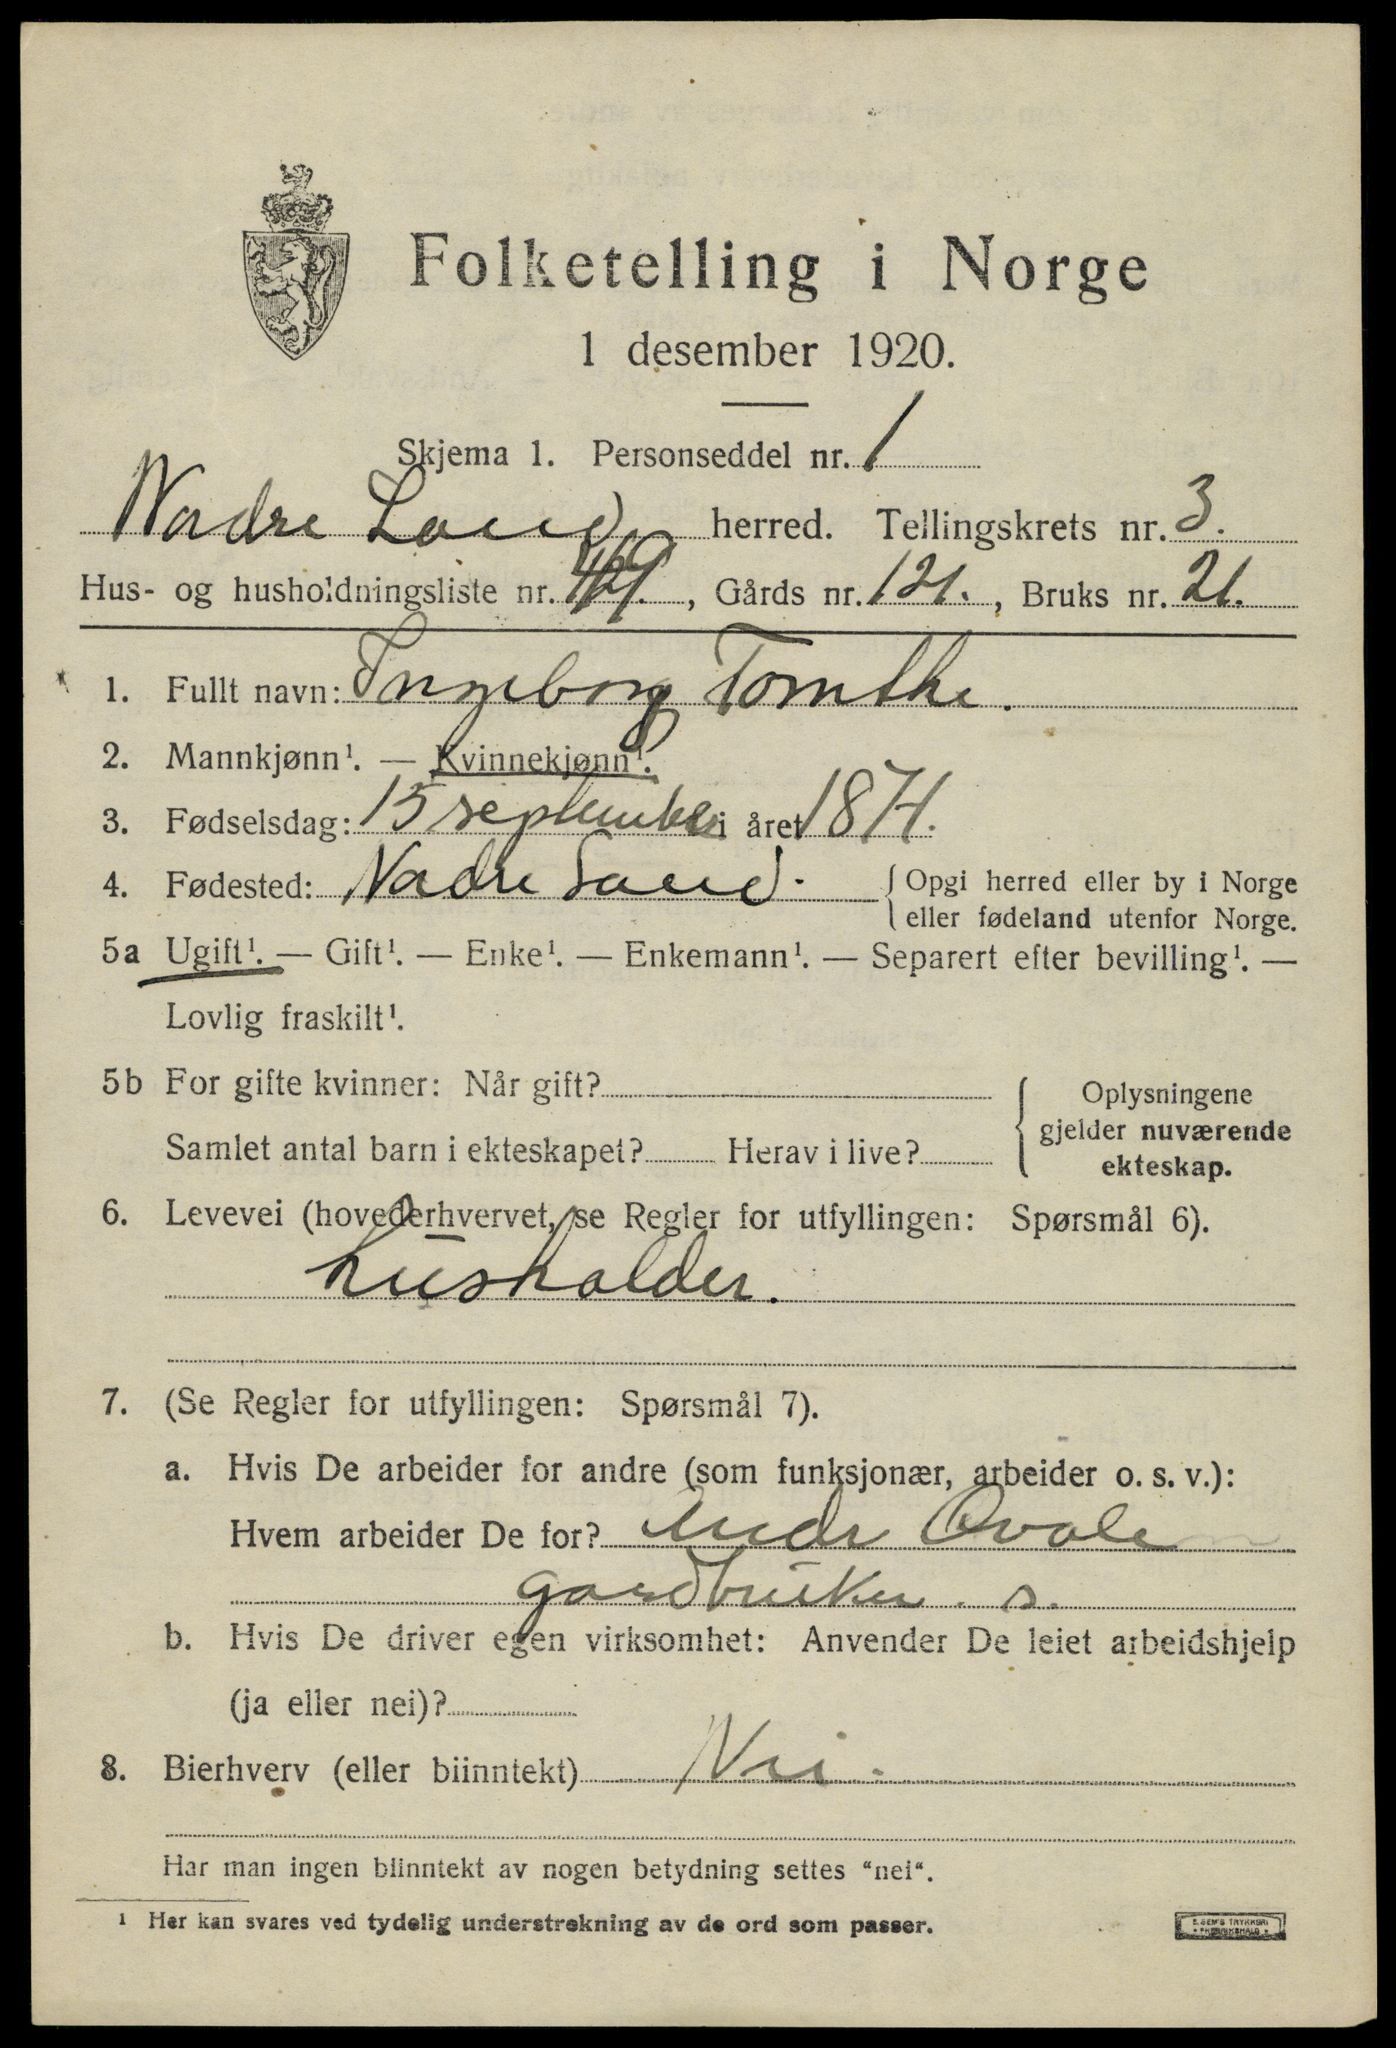 Folketelling i Norge
1 desember 1920.
Skjema 1. Personseddel nr. 1
Nordre Land herred. Tellingskrets nr. 3.
Hus- og husholdningsliste nr. , Gårds nr. 121. , Bruks nr. 21.
1. Fullt navn: Ingeborg Tomthe.
2. Mannkjønn¹. — Kvinnekjønn¹.
3. Fødselsdag: 15 september i året
4. Fødested: Nordre Land. Opgi herred eller by i Norge
eller fødeland utenfor Norge.
5a Ugift¹. — Gift¹. — Enke¹. — Enkemann¹. — Separert efter bevilling¹. —
Lovlig fraskilt¹.
5b For gifte kvinner: Når gift? Oplysningene
gjelder nuværende
Samlet antal barn i ekteskapet? Herav i live?
ekteskap.
6. Levevei (hovederhvervet, se Regler for utfyllingen: Spørsmål 6).
husholder.
7. (Se Regler for utfyllingen: Spørsmål 7).
a. Hvis De arbeider for andre (som funksjonær, arbeider o. s. v.):
Hvem arbeider De for? Andr
gardbruker. s.
b. Hvis De driver egen virksomhet: Anvender De leiet arbeidshjelp
(ja eller nei)?
8. Bierhverv (eller biinntekt) Nei.
Har man ingen biinntekt av nogen betydning settes “nei“.
¹ Her kan svares ved tydelig understrekning av de ord som passer.
E. SEM'S TRYKKERI
• FREDRIKSHALD •